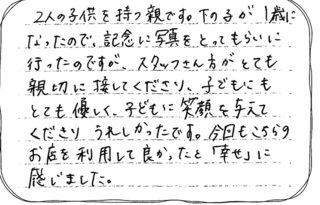 2人の子供を持つ親です。下の子が1歳に
なったので、記念に写真をとってもらいに
行ったのですが、スタッフさん方がとても
親切に接してくださり、子どもにも
とても優しく、子どもに笑顔を与えて
くださり うれしかったです。今回もこちらの
お店を利用して良かったと「幸せ」に
感じました。